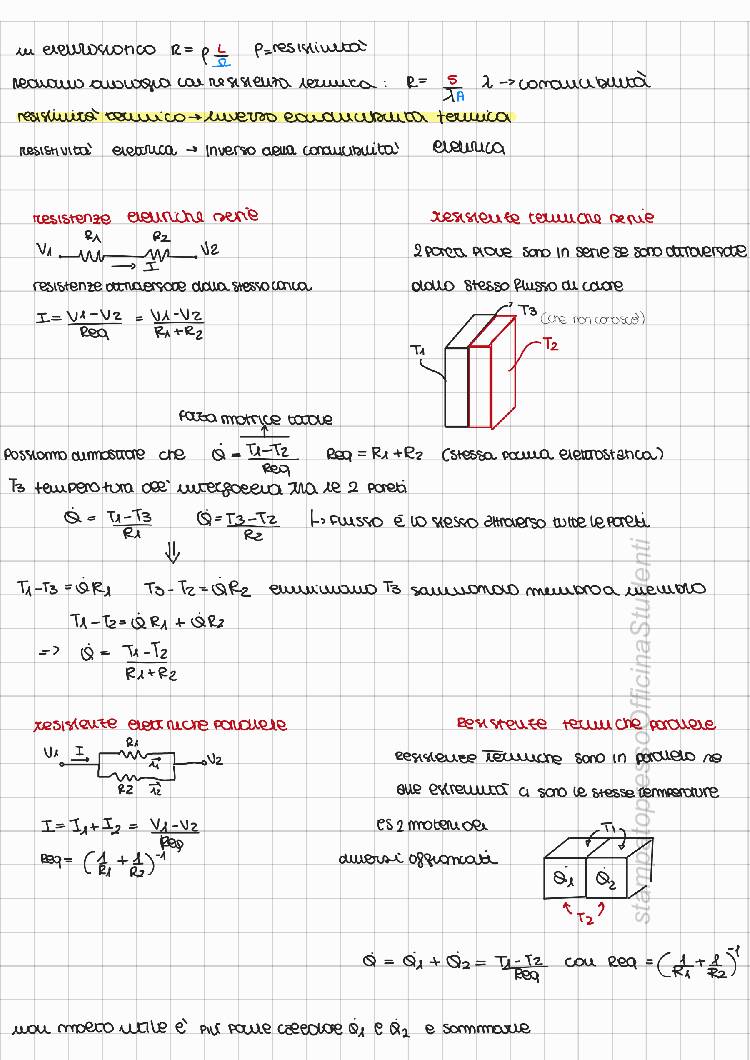 in elettrotecnico R = ρ L/Ω ρ = resistività
vediamo analogia con resistenza termica : R = S/λA λ → conducibilità
resistività termica → inverso conducibilità termica
resistività elettrica → inverso della conducibilità elettrica
resistenze elettriche serie
R1 R2
V1 V2
I
resistenze attraversate dalla stessa carica
I = V1-V2/Req = V1-V2/R1+R2
resistenze termiche serie
2 pareti piane sono in serie se sono attraversate
dallo stesso flusso di calore
T3 (che non conosco)
T1 T2
forza motrice totale
possiamo dimostrare che Q̇ = T1-T2/Req Req = R1+R2 (stessa forma elettrostatica)
T3 temperatura dell'interfaccia tra le 2 pareti
Q̇ = T1-T3/R1 Q̇ = T3-T2/R2 ↳ flusso è lo stesso attraverso tutte le pareti
⇓
T1-T3 = Q̇R1 T3-T2 = Q̇R2 eliminiamo T3 sommando membro a membro
T1-T2 = Q̇R1 + Q̇R2
=> Q̇ = T1-T2/R1+R2
resistenze elettriche parallele
R1
V1 I i1 V2
R2 i2
I = I1+I2 = V1-V2/Req
Req = (1/R1 + 1/R2)^-1
Resistenze termiche parallele
Resistenze termiche sono in parallelo se
alle estremità ci sono le stesse temperature
es 2 materiali
diversi affiancati
T1
Q̇1 Q̇2
T2
Q̇ = Q̇1 + Q̇2 = T1-T2/Req con Req = (1/R1 + 1/R2)^-1
non molto utile è più facile calcolare Q̇1 e Q̇2 e sommarle
stampatopessoOfficinaStudenti